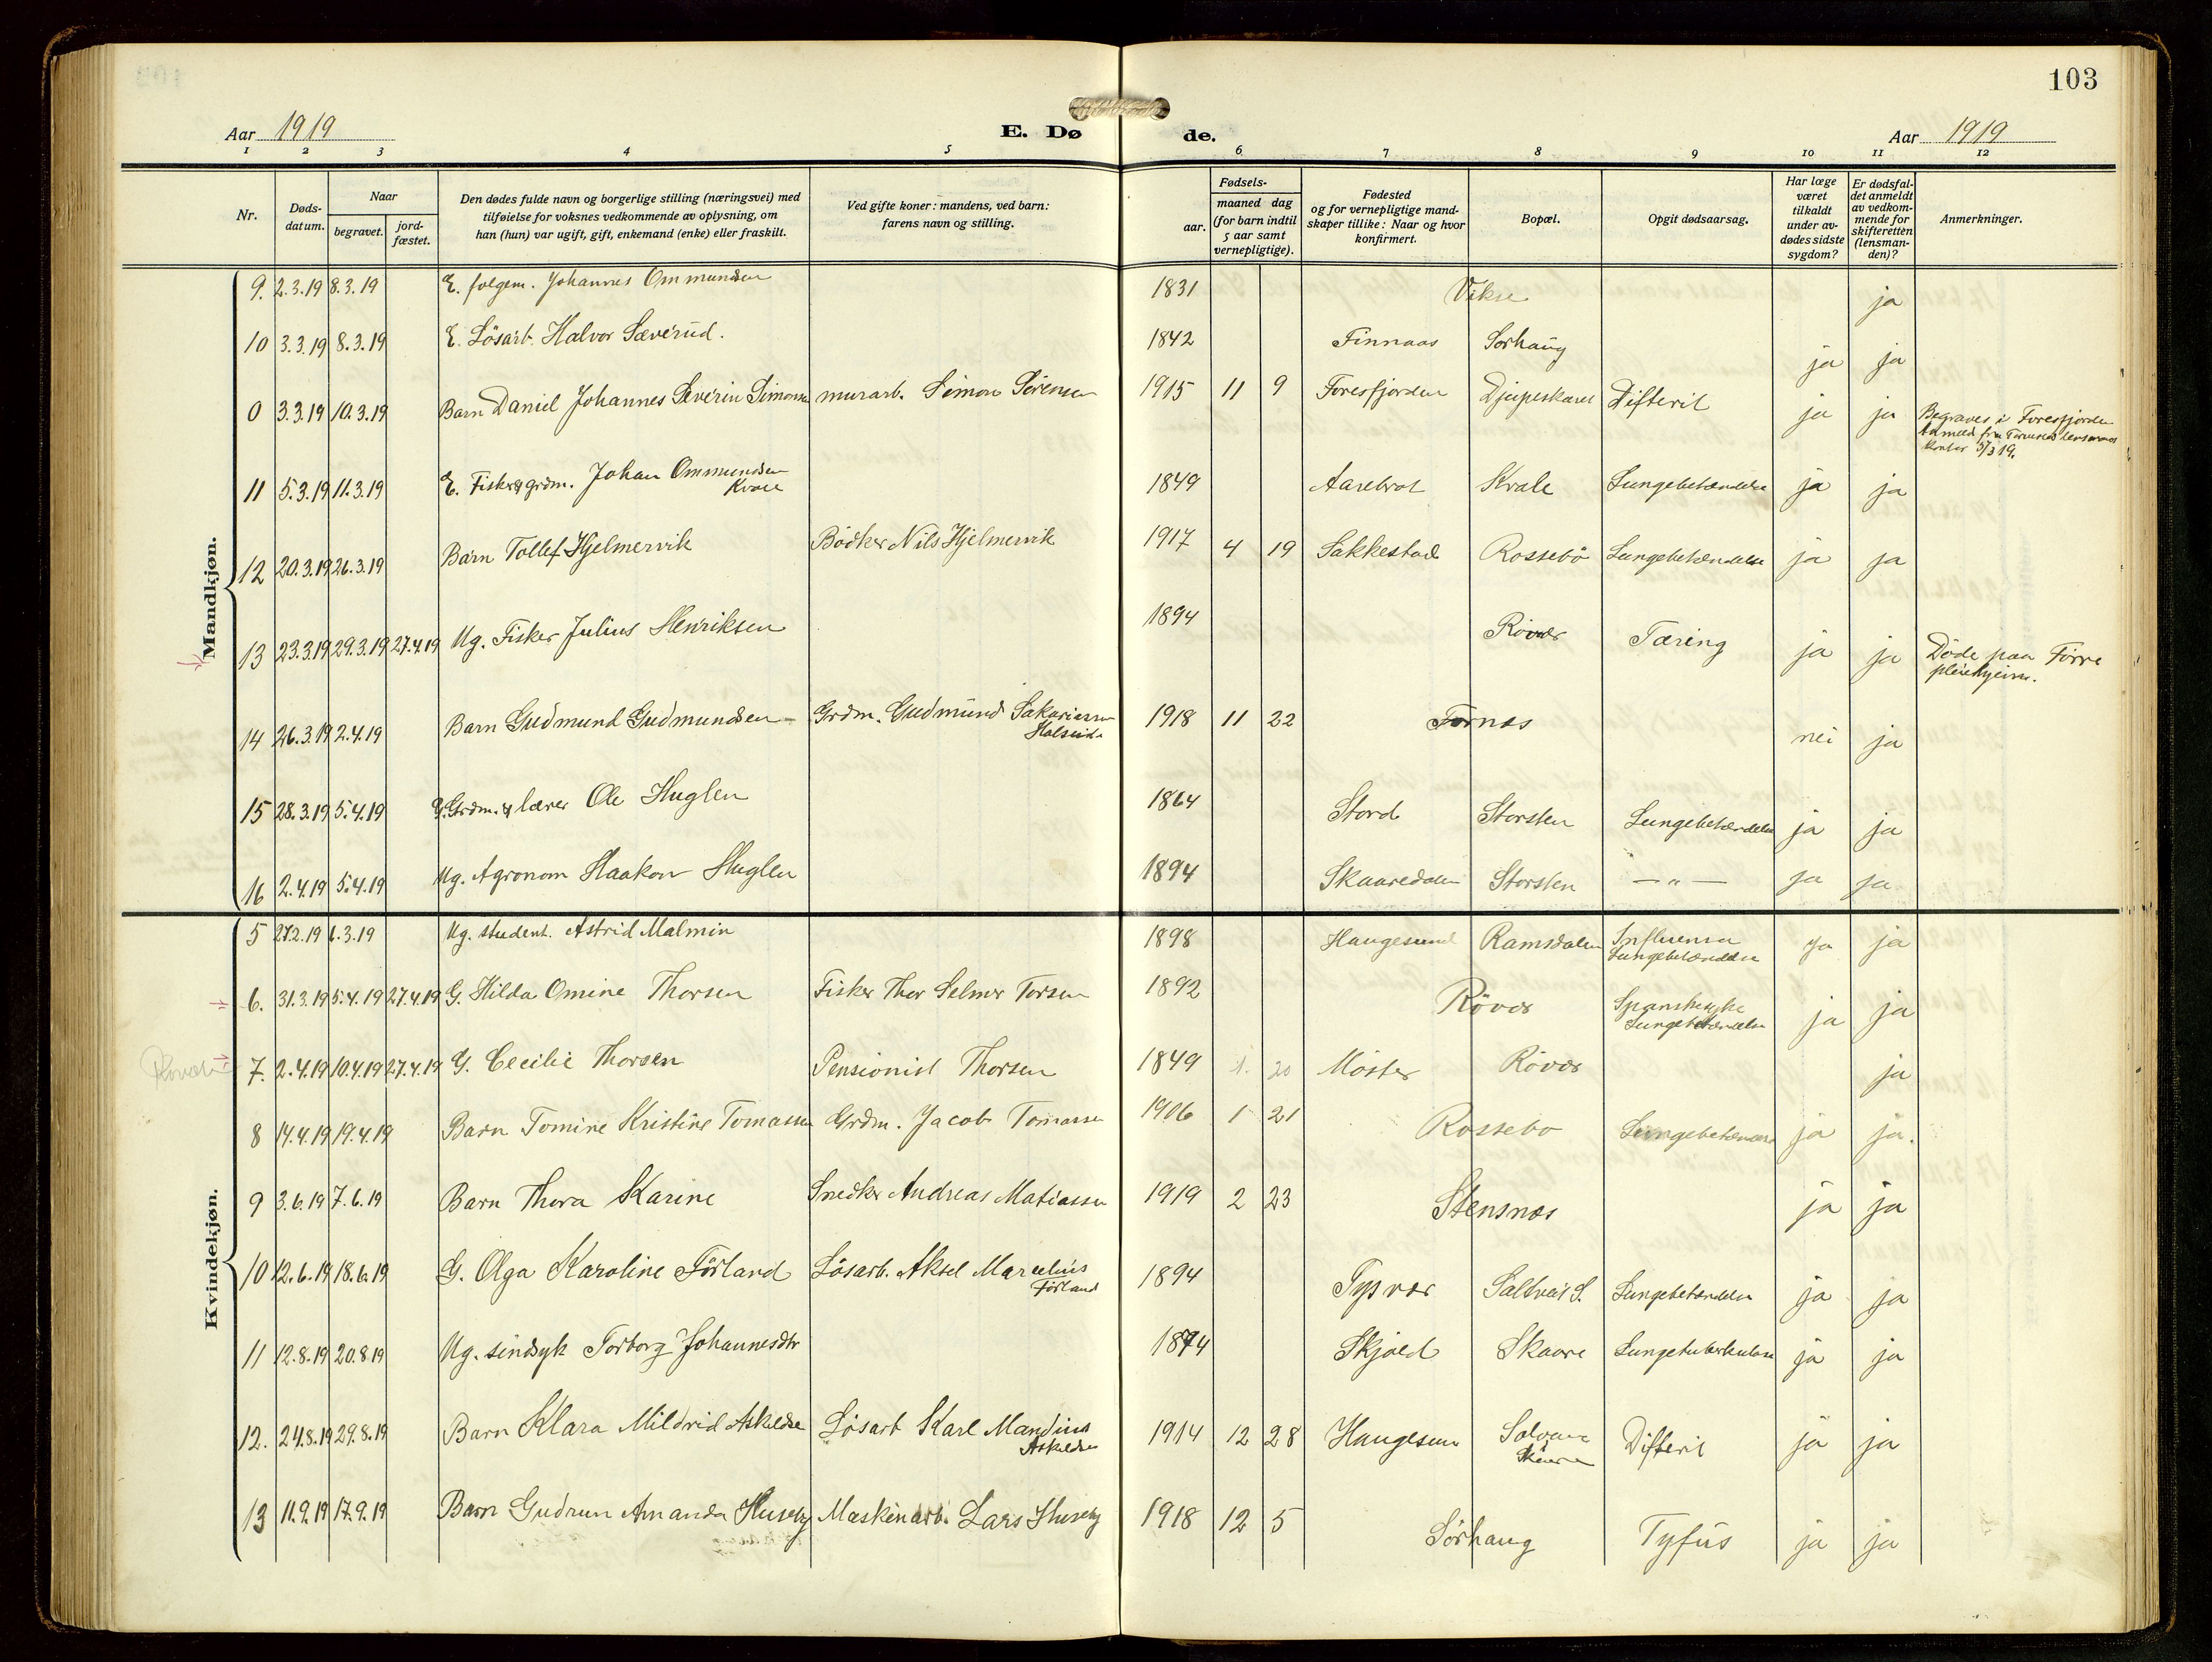 103
Aar 1919
E. Dø de.
Aar 1919
1 2 3 4 5 6 7 8 9 10 11 12
Nr.
Døds-datum.
Naar
begravet.
jord-fæstet.
Den dødes fulde navn og borgerlige stilling (næringsvei) med
tilføielse for voksnes vedkommende av oplysning, om
han (hun) var ugift, gift, enkemand (enke) eller fraskilt.
Ved gifte koner: mandens, ved barn:
farens navn og stilling.
Fødsels-
aar.
maaned dag
(for barn indtil
5 aar samt
vernepligtige).
Fødested
og for vernepligtige mand-
skaper tillike: Naar og hvor
konfirmert.
Bopæl.
Opgit dødsaarsag.
Har læge
været
tilkaldt
under av-
dødes sidste
sygdom?
Er dødsfal-
det anmeldt
av vedkom-
mende for
skifteretten
(lensman-
den)?
Anmerkninger.
Mandkjøn.
9. 2.3.19 8.3.19 E. folgem. Johannes Ommundsen 1831 Vikse ja
10 3.3.19 8.3.19 E. Lösarb. Halvor Sæverud. 1842 Finnaas Sørhaug ja ja
0 3.3.19 10.3.19 Barn Daniel Johannes Severin Simonsen murarb. Simon Sørensen 1915 11 9 Foresfjorden Djupeskaret Difterit ja ja Begraves i Foresfjorden
kontor 5/3 19.
11 5.3.19 11.3.19 E. Fisker & grdm. Johan Ommundsen
Kvale 1849 Aarebrot Kvale Lungebetændelse ja ja
12 20.3.19 26.3.19 Barn Tollef Hjelmervik Bødker Nils Hjelmervik 1917 4 19 Sakkestad Rossebø Lungebetændelse ja ja
13 23.3.19 29.3.19 27.4.19 Ug. Fisker Julius Henriksen 1894 Rövær Tæring ja ja Døde paa Førre
pleiehjem.
14 26.3.19 2.4.19 Barn Gudmund Gudmundsen - Grdm. Gudmund Sakariassen
1918 11 22 Tornes nei ja
15 28.3.19 5.4.19 G. Grdm. & lærer Ole Huglen 1864 Stord Storsten Lungebetændelse ja ja
16 2.4.19 5.4.19 Ug. Agronom Haakon Huglen 1894 Skaaredalen Storsten — " — ja ja
Kvindekjøn.
5 27.2.19 6.3.19 Ug. student. Astrid Malmin 1898 Haugesund Ramsdalen Influensa
Lungebetændelse ja ja
6. 31.3.19 5.4.19 27.4.19 G. Hilda Omine Thorsen Fisker Thor Selmer Torsen 1892 Rövær Spanskesyke
Lungebetændelse ja ja
Rovær 7. 2.4.19 10.4.19 27.4.19 G. Cecilie Thorsen Pensionist Thorsen 1849 1. 20 Möster Rövær ja
8 14.4.19 19.4.19 Barn Tomine Kristine Tomassen Grdm. Jacob Tomassen 1906 1 21 Rossebo Lungebetændelse ja ja.
9 3.6.19 7.6.19 Barn Thora Karine Snedker Andreas Matiassen 1919 2 23 Stensnes ja ja
10 12.6.19 18.6.19 G. Olga Karoline Førland Lösarb. Aksel Marcelius
Førland 1894 Tysvær Saltveit S. Lungebetændelse ja ja
11 12.8.19 20.8.19 Ug. sindsyk Torborg Johannesdtr 1874 Skjold Skaare Lungetuberkulose ja ja
12. 24.8.19 29.8.19 Barn Klara Mildrid Askeldsen Løsarb Karl Mandius
Askeldsen 1914 12 28 Haugesun Solvang
Skaare Difterit ja ja
13 11.9.19 17.9.19 Barn Gudrun Amanda Huseby Maskinarb. Lars Huseby 1918 12 5 Sørhaug Tyfus ja ja